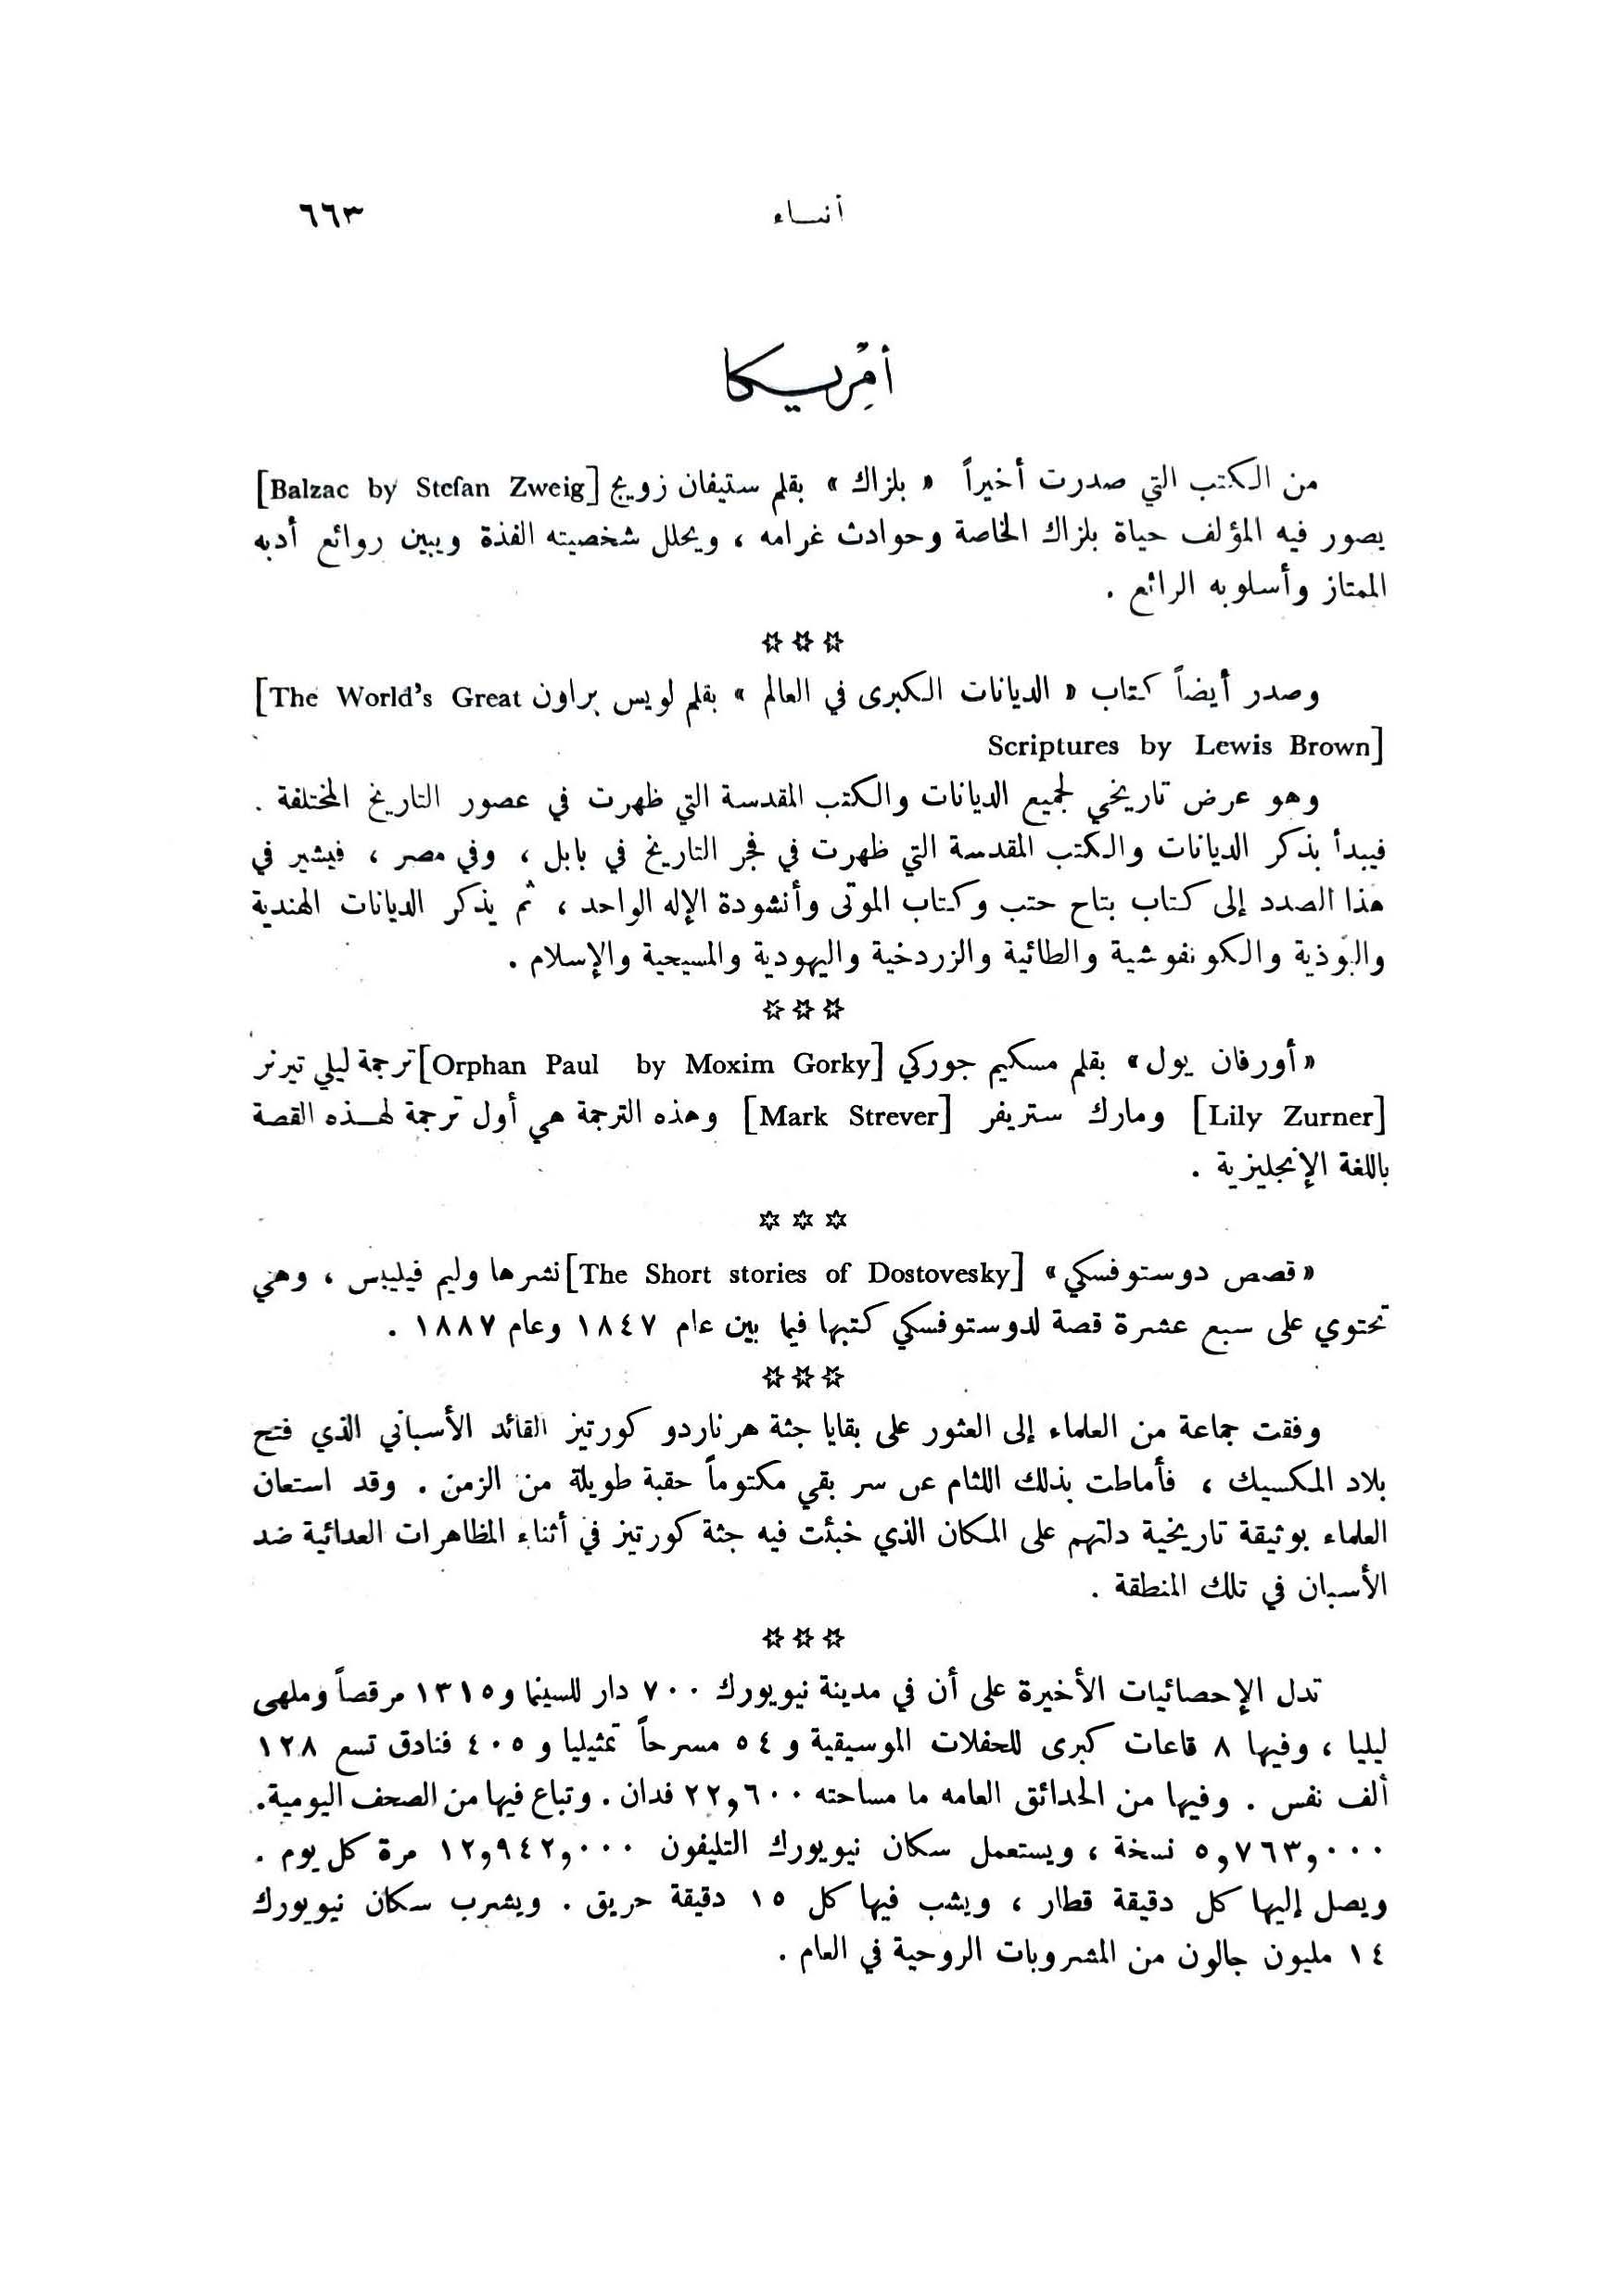 أنباء ٦٦٣
أمريكا
من الكتب التي صدرت أخيراً « بلزاك » بقلم ستيفان زويج [Balzac by Stefan Zweig]
يصور فيه المؤلف حياة بلزاك الخاصة وحوادث غرامه ، ويحلل شخصيته الفذة ويبين روائع أدبه
الممتاز وأسلوبه الرائع .
☆☆☆
وصدر أيضاً كتاب « الديانات الكبرى في العالم » بقلم لويس براون [The World's Great
Scriptures by Lewis Brown]
وهو عرض تاريخي لجميع الديانات والكتب المقدسة التي ظهرت في عصور التاريخ المختلفة .
فيبدأ بذكر الديانات والكتب المقدسة التي ظهرت في فجر التاريخ في بابل ، وفي مصر ، فيشير في
هذا الصدد إلى كتاب بتاح حتب وكتاب الموتى وأنشودة الإله الواحد ، ثم يذكر الديانات الهندية
والبوذية والكونفوشية والطائية والزردخية واليهودية والمسيحية والإسلام .
☆☆☆
« أورفان يول » بقلم مسكيم جوركي [Orphan Paul by Moxim Gorky] ترجمة ليلي تيرنر
[Lily Zurner] ومارك ستريفر [Mark Strever] وهذه الترجمة هي أول ترجمة لهذه القصة
باللغة الإنجليزية .
☆☆☆
« قصص دوستوفسكي » [The Short stories of Dostovesky] نشرها وليم فيليبس ، وهي
تحتوي على سبع عشرة قصة لدوستوفسكي كتبها فيما بين عام ١٨٤٧ وعام ١٨٨٧ .
☆☆☆
وفقت جماعة من العلماء إلى العثور على بقايا جثة هرناردو كورتيز القائد الأسباني الذي فتح
بلاد المكسيك ، فأماطت بذلك اللثام عن سر بقي مكتوماً حقبة طويلة من الزمن . وقد استعان
العلماء بوثيقة تاريخية دلتهم على المكان الذي خبئت فيه جثة كورتيز في أثناء المظاهرات العدائية ضد
الأسبان في تلك المنطقة .
☆☆☆
تدل الإحصائيات الأخيرة على أن في مدينة نيويورك ٧٠٠ دار للسينما و١٣١٥ مرقصاً وملهى
ليليا ، وفيها ٨ قاعات كبرى للحفلات الموسيقية و ٥٤ مسرحاً تمثيليا و ٤٠٥ فنادق تسع ١٢٨
ألف نفس . وفيها من الحدائق العامه ما مساحته ٢٢,٦٠٠ فدان . وتباع فيها من الصحف اليومية.
٥,٧٦٣,٠٠٠ نسخة ، ويستعمل سكان نيويورك التليفون ١٢,٩٤٢,٠٠٠ مرة كل يوم .
ويصل إليها كل دقيقة قطار ، ويشب فيها كل ١٥ دقيقة حريق . ويشرب سكان نيويورك
١٤ مليون جالون من المشروبات الروحية في العام .